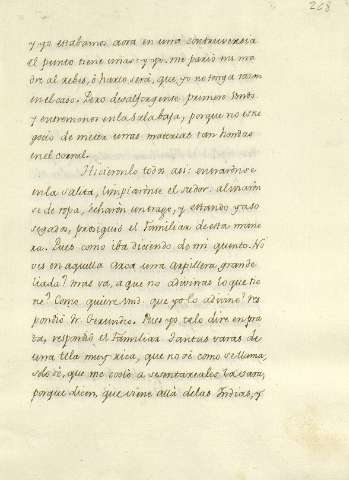 268
y yo estabamos aora en una controversia
el punto tiene unas: y yo, me pario mi ma
dre al rebes, ò harto será, que yo no tenga razon
en el caso. Pero desalforgente primero Vmds
y entremonos en la Sala baja, porque no es ne
gocio de meter unas materias tan hondas
en el corral.
Hicieronlo todos asi: entraronse
en la salita, limpiaronse el sudor: aliviaron
se de ropa, echaron un trago, y estando ya so
segados, prosiguió el Familiar de esta mane
ra. Pues como iba diciendo de mi quento. No
ves en aquella Arca una arpillera grande
liada? mas va, a que no adivinas lo que tie
ne? Como quiere Vmd que yo lo adivine? res
pondió Fr. Gerundio. Pues yo te lo diré en pla
ta, respondió el Familiar. Tantas varas de
una tela muy rica, que no sè como se llama,
solo sé, que me costó a sesenta reales la vara,
porque dicen, que viene allá de las Indias, y